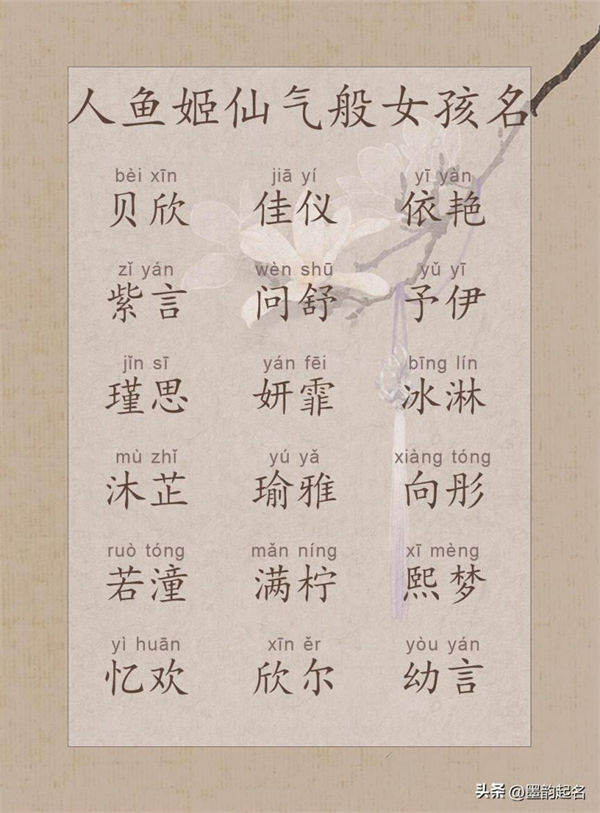 人鱼姬仙气般女孩名
bèi xīn jiā yí yī yàn
贝欣 佳仪 依艳
zǐ yán wèn shū yǔ yī
紫言 问舒 予伊
jǐn sī yán fēi bīng lín
瑾思 妍霏 冰淋
mù zhǐ yú yǎ xiàng tóng
沐芷 瑜雅 向彤
ruò tóng mǎn níng xī mèng
若潼 满柠 熙梦
yì huān xīn ěr yòu yán
忆欢 欣尔 幼言
头条 @墨韵起名